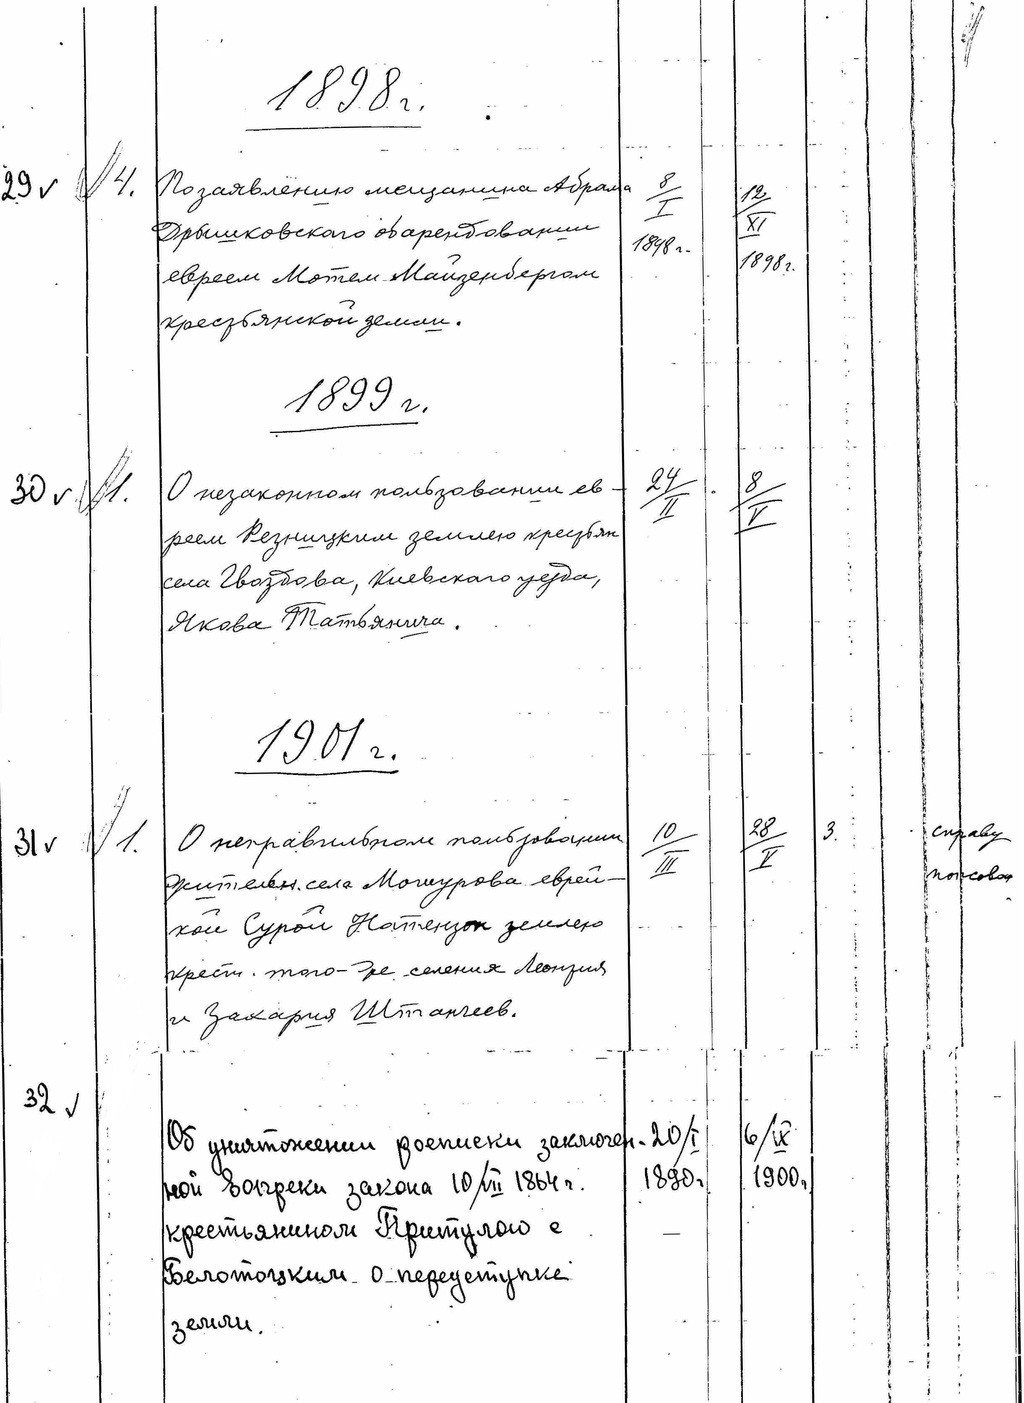 1898 г.
29 4. По заявлению мещанина Абрама 8/I 12/XI
Дрышковского об арендовании 1898 г. 1898 г.
евреем Мотем Майзенбергом
крестьянской земли.
1899 г.
30 1. О незаконном пользовании ев- 24/II 8/V
реем Резницким землею крестьян
села Гвоздова, Киевского уезда,
Якова Татьянича.
1901 г.
31 1. О неправильном пользовании 10/III 28/V 3. справу
жительн. села Мошурова еврей-
кой Сурой Натензон землею
крест. того-же селения Леонтия
и Захария Штанчеев.
32
Об уничтожении росписки заключен- 20/I 6/IX
ной вопреки закона 10/VII 1864 г. 1890 г. 1900 г.
крестьянином Притулою с
Белотоцким о переуступке
земли.